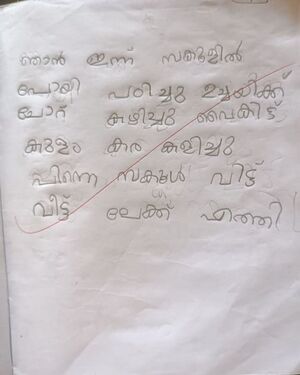 ഞാൻ ഇന്ന് സ്കൂളിൽ
പോയി പഠിച്ചു ഉച്ചയ്ക്ക്
ചോറ് കഴിച്ചു വൈകിട്ട്
കുളം കര കുളിച്ചു
പിന്നെ സ്കൂൾ വിട്ട്
വീട്ട് ലേക്ക് എത്തി